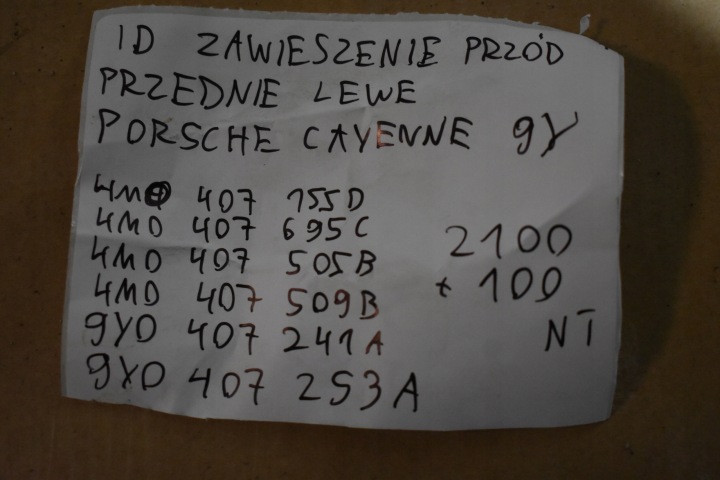 ID ZAWIESZENIE PRZÓD
PRZEDNIE LEWE
PORSCHE CAYENNE 9Y
4M0 407 155D
4M0 407 695C
4M0 407 505B
4M0 407 509B
9Y0 407 241A
9Y0 407 253A
2100
+ 100
NT